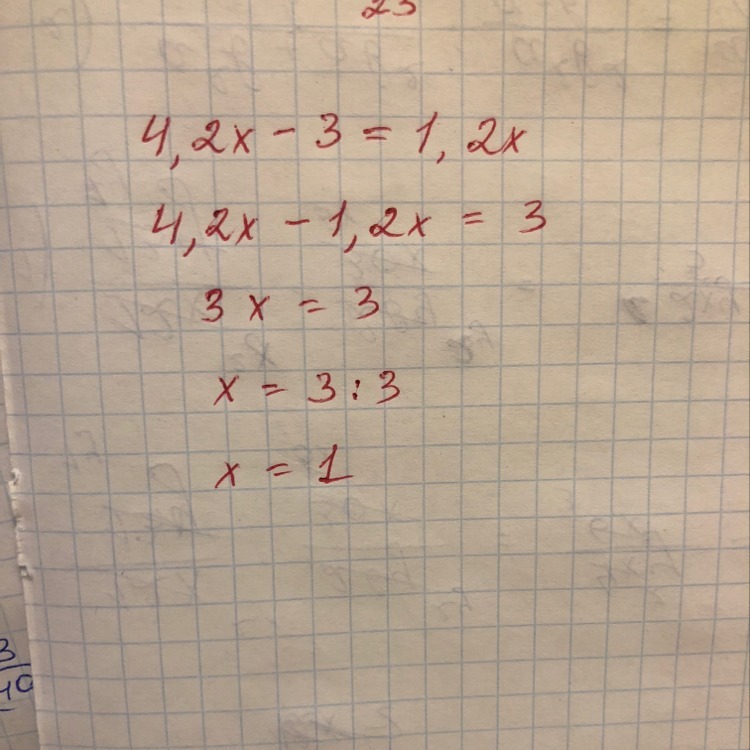 23
4,2x - 3 = 1,2x
4,2x - 1,2x = 3
3x = 3
x = 3 : 3
x = 1
3
40